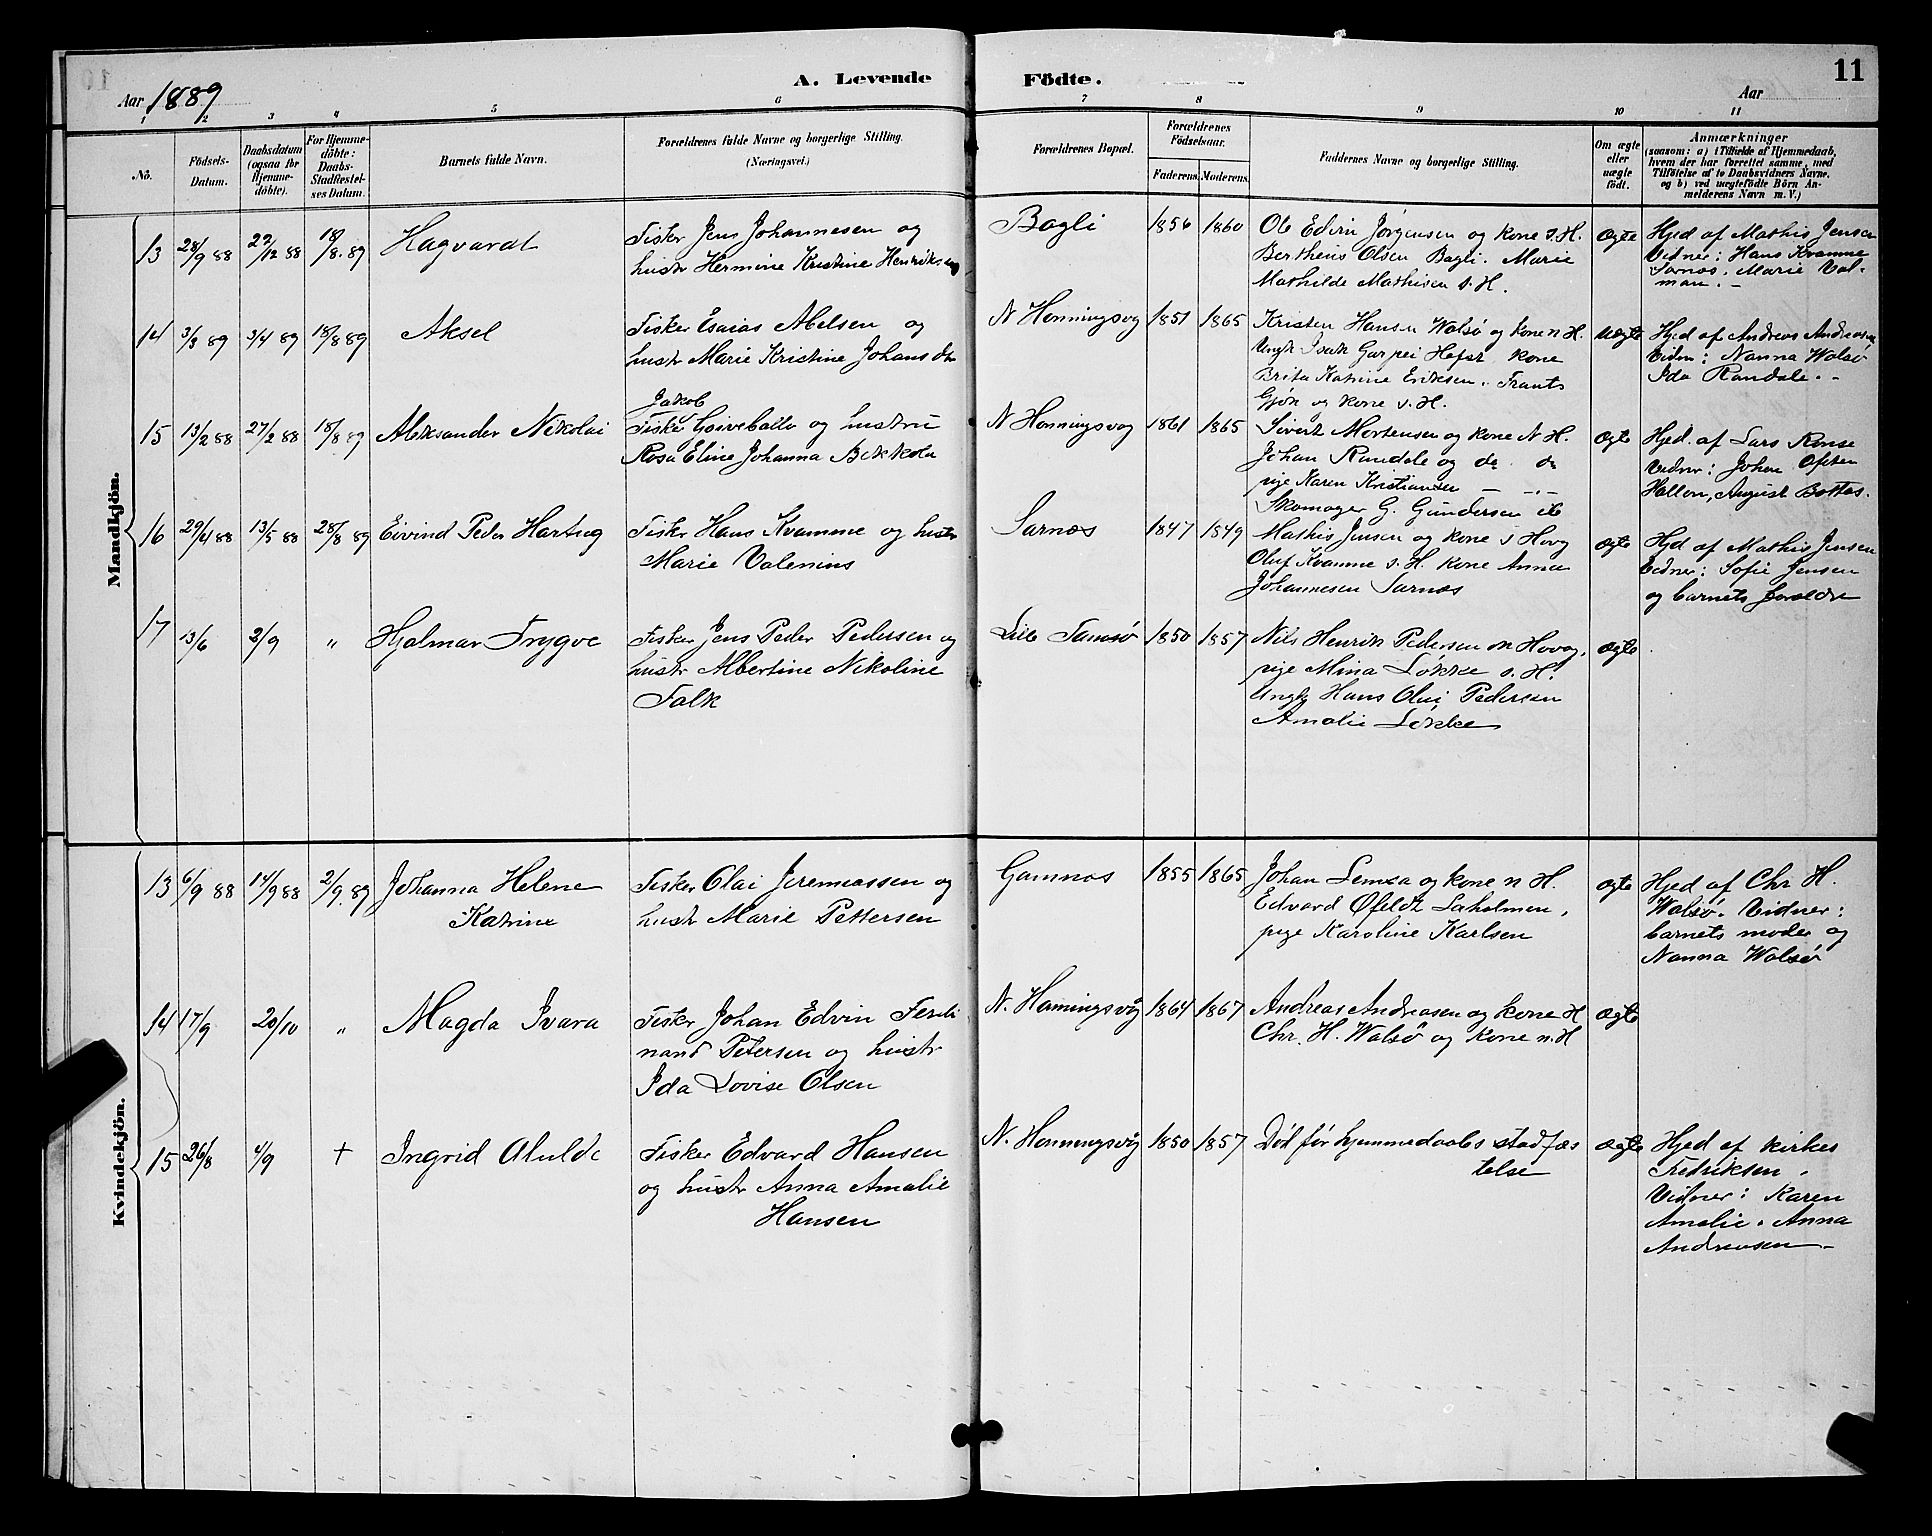 A. Levende Födte.
11
Aar 1889
Aar
1 2 3 4 5 6 7 8 9 10 11
No.
Födsels-Datum.
Daabsdatum (ogsaa for Hjemme-döbte).
For Hjemme-döbte: Daabs-Stadfæstel-ses Datum.
Barnets fulde Navn.
Forældrenes fulde Navne og borgerlige Stilling. (Næringsvei.)
Forældrenes Bopæl.
Forældrenes Födselsaar.
Faderens. Moderens.
Faddernes Navne og borgerlige Stilling.
Om ægte eller uægte födt.
Anmærkninger
(saasom: a) i Tilfælde af Hjemmedaab,
hvem der har forrettet samme, med
Tilföielse af to Daabsvidners Navne.
og b) ved uægtefödte Börn An-
melderens Navn m.V.)
Mandkjön.
13 28/9 88 29/12 88 18/8.89 Hagvardt
Fisker Jens Johannesen og
hustr Hermine Kristine Henriksen
Bagli 1856 1860
Ole Edvin Jørgensen og kone s.H.
Bertheus Olsen Bagli. Marie
Mathilde Mathisen s.H.
ægte
Hjed af Mathis Jensen
Vidner: Hans Kvamme
Sarnes. Marie Val-
man. -
14 3/3 89 3/4 89 18/8 89 Aksel
Fisker Esaias Abelsen og
hustr Marie Kristine Johansdtr
N Honningsvog 1851 1865
Kristen Hansen Walsø og kone n H.
Ungk Isak Hofst. kone
Brita Katrine Eriksen. Frants
Gjøk og kone s.H.
uægte
Hjed af Andreas Andreasen
Vidn: Nanna Walsø
Ida Randale. -
15 13/2 88 27/2 88 18/8 89 Aleksander Nikolai
Jakob
Fisker og hustru
Rosa Eline Johanna Bekkola
N Honningsvog 1861 1865
Sivert Mortensen og kone N H.
Johan Randale og do do
pige Karen Kristiansen - -"-
Skomager G. Gundersen do
ægte
Hjed. af Lars
Vidner: Johan
August
16 29/4 88 13/5 88 28/8 89 Eivind Peder Hartvig
Fisker Hans Kvamme og hustr
Marie Valenius
Sarnes 1847 1849
Mathis Jensen og kone s Hovg
Oluf Kvamme s.H. kone Anna
Johannesen Sarnes
ægte
Hjd af Mathis Jensen
Vidner: Sofie Jensen
og barnets foreldre
17 13/6 2/9 " Hjalmar Trygve
Fisker Jens Peder Pedersen og
hustr Albertine Nikoline
Falk
Lille Tamsø 1850 1857
Nils Henrik Pedersen n Hovog.
pige Mina Løkke s.H.
Ungk Hans Olai Pedersen
Amalie Løkke
ægte
Kvindekjön.
13 6/9 88 14/9 88 2/9.89 Johanna Helene
Katrine
Fisker Olai Jeremiassen og
hustr Marie Pettersen
Gamnes 1855 1865
Johan Lemea og kone n H.
Edvard Øfeldt Laholmen,
pige Karoline Karlsen
ægte
Hjed af Chr H.
Walsø. Vidner:
barnets moder og
Nanna Walsø
14 17/9 20/10 " Magda Ivara
Fisker Johan Edvin Ferdi
nand Petersen og hustr
Ida Lovise Olsen
N. Honningsvåg 1864 1867
Andreas Andreasen og kone H
Chr. H. Walsø og kone n.H
ægte
15 26/8 4/9 + Ingrid Alulde
Fisker Edvard Hansen
og hustr Anna Amalie
Hansen
N. Honningsvåg 1850 1857
Død før hjemmedaabs stadfæs
telse
ægte
Hjed af kirkes
Fredriksen.
Vidner: Karen
Amalie. Anna
Andreasen -